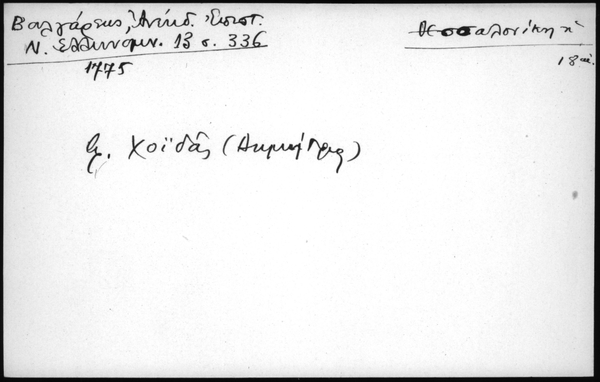 Βουλγάρεως, Ἀνέκδ. Ἐπιστ.
Ν. Ἑλληνομν. 13 σ. 336
1775
Θεσσαλονίκη
18 αἰ.
Χοϊδᾶς (Δημήτριος)